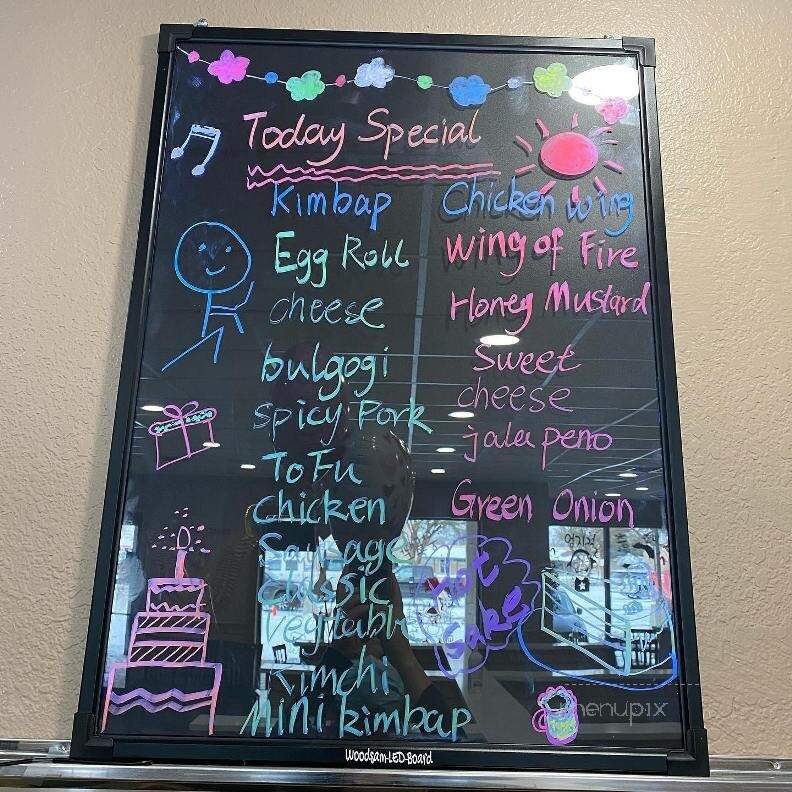 Today Special
Kimbap
Egg Roll
cheese
bulgogi
Spicy Pork
ToFu
chicken
Sausage
classic
vegetable
kimchi
MINI kimbap
Chicken wing
Wing of Fire
Honey Mustard
Sweet
cheese
jalapeno
Green Onion
Hot
Sake
menupix
Woodsam-LED-Board